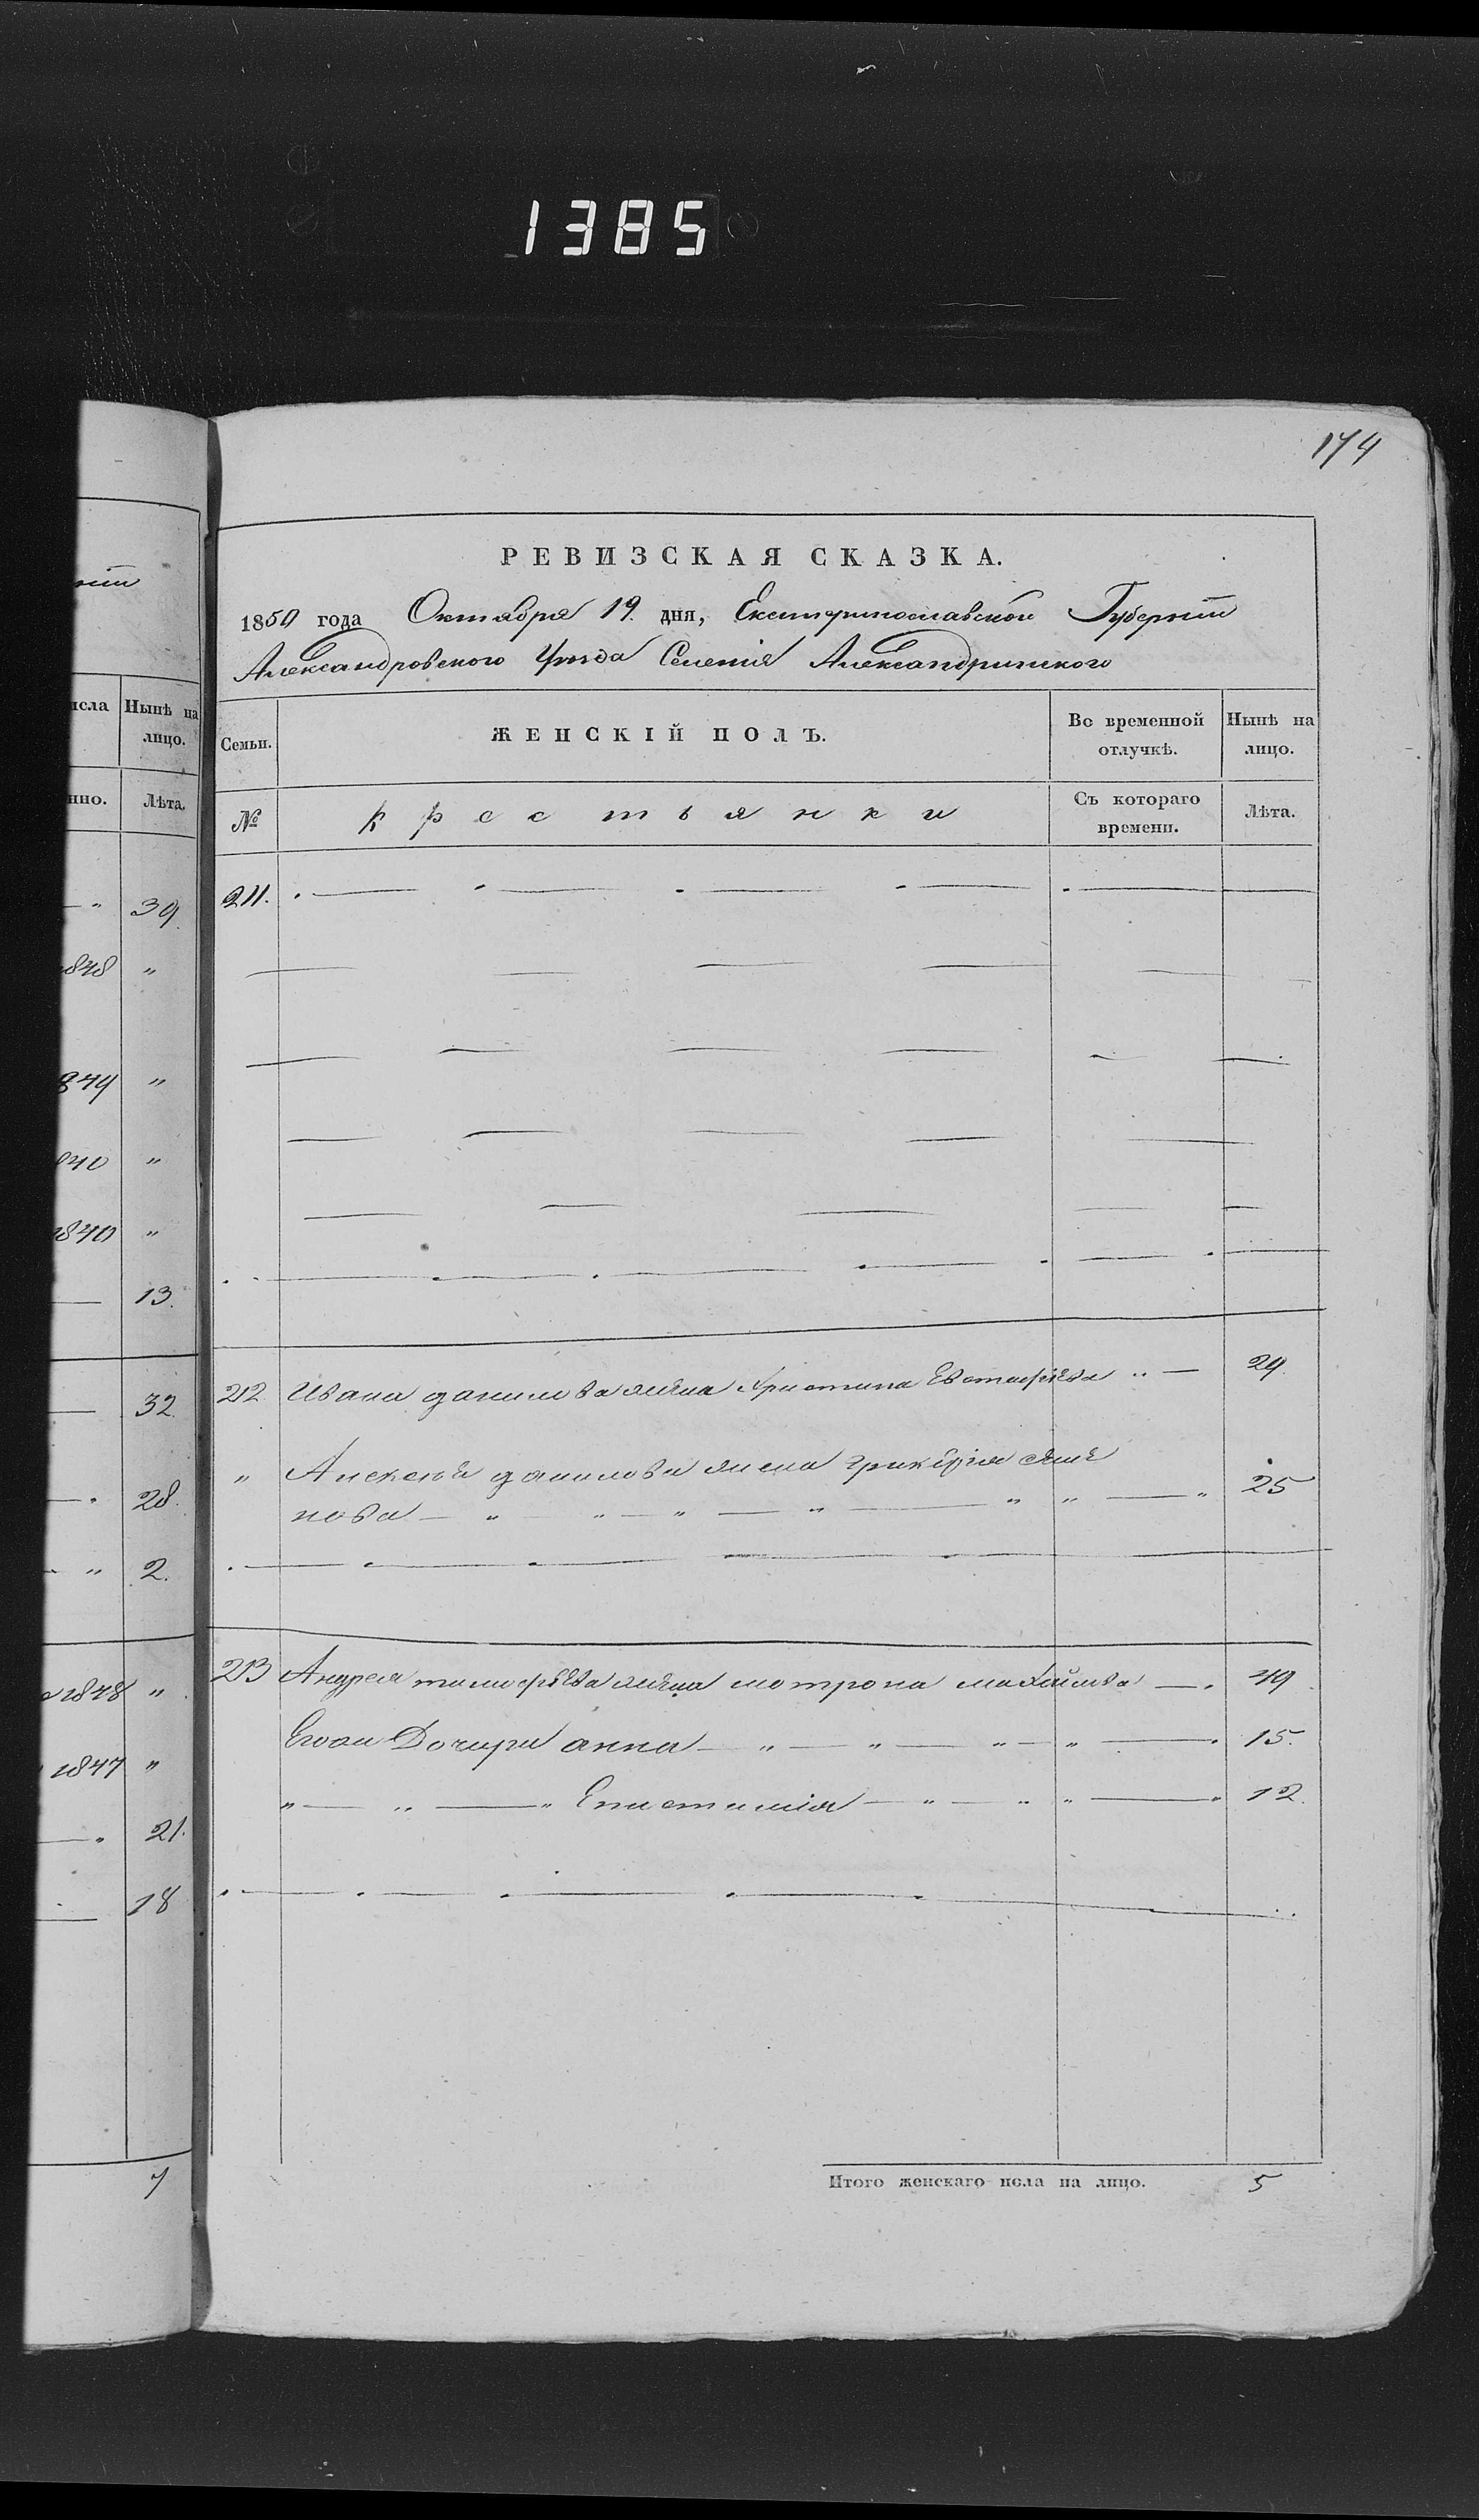 1385
174
РЕВИЗСКАЯ СКАЗКА.
1850 года Октября 19. дня, Екатеринославской Губернiи
Александровского Уѣзда Селенiя Александринского
Семьи.
ЖЕНСКІЙ ПОЛЪ.
Во временной отлучкѣ.
Нынѣ на лицо.
№
Крестьянки
Съ котораго времени.
Лѣта.
211.
212 Ивана данилова жена Христина Евстафѣева " — 29.
" Алексѣя данилова жена гликерiя семе
нова — " — " — " — " — " " — " 25
213 Андрея тимофѣева жена мотрона михайлова — . 49
Егоаи Дочери анна — " — " — " — " — . 15.
" — " — " Епистимiя — " — " " — " 12.
Итого женскаго пола на лицо. 5
нiи
исла
Нынѣ на лицо.
нно.
Лѣта.
— " 39.
848 "
849 "
840 "
1840 "
— 13.
— 32.
— . 28.
— " 2.
1848 " .
1847 "
— . 21.
— 18
7